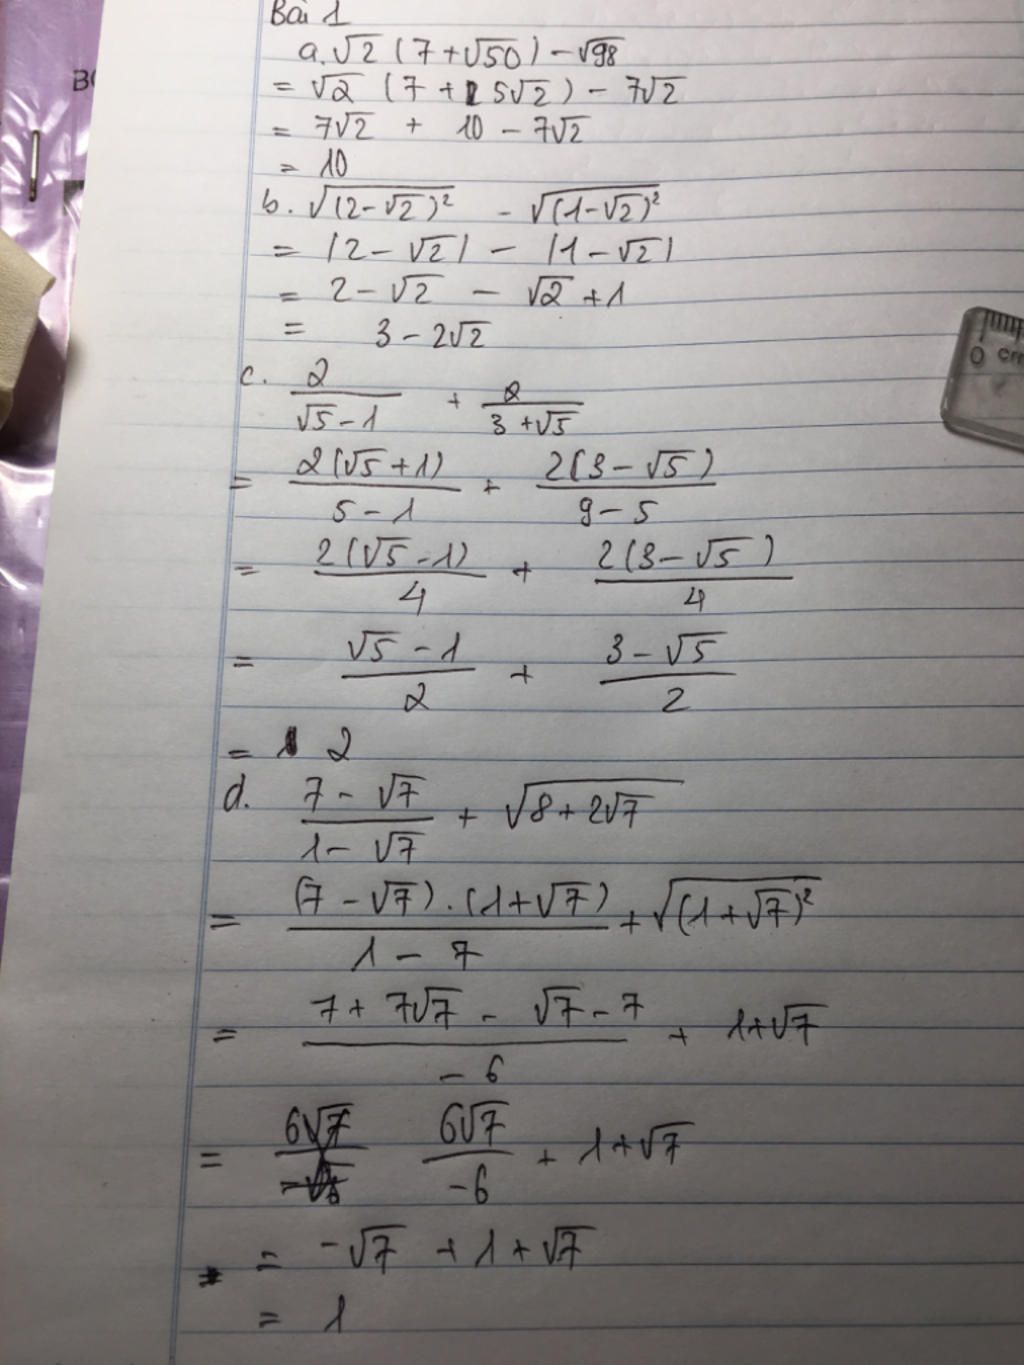 Bài 1
a. √2 (7 + √50) - √98
= √2 (7 + 5√2) - 7√2
= 7√2 + 10 - 7√2
= 10
b. √(2-√2)² - √(1-√2)²
= |2 - √2| - |1 - √2|
= 2 - √2 - √2 + 1
= 3 - 2√2
c. 2/(√5 - 1) + 2/(3 + √5)
= 2(√5 + 1)/(5 - 1) + 2(3 - √5)/(9 - 5)
= 2(√5 - 1)/4 + 2(3 - √5)/4
= (√5 - 1)/2 + (3 - √5)/2
= 2
d. (7 - √7)/(1 - √7) + √(8 + 2√7)
= (7 - √7).(1 + √7)/(1 - 7) + √(1 + √7)²
= (7 + 7√7 - √7 - 7)/(-6) + 1 + √7
= 6√7/(-6) + 1 + √7
= -√7 + 1 + √7
= 1
0 cm